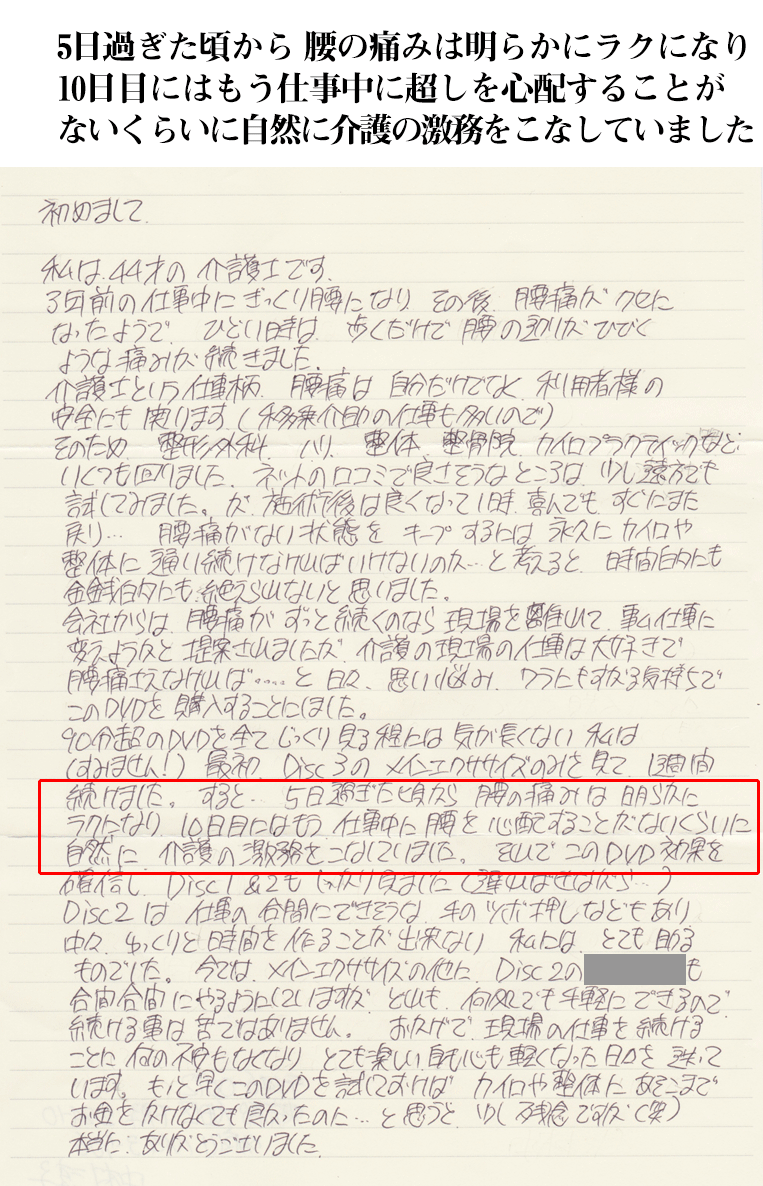 5日過ぎた頃から 腰の痛みは明らかにラクになり
10日目にはもう仕事中に超しを心配することが
ないくらいに自然に介護の激務をこなしていました
初めまして.
私は、44才の 介護士です.
3年前の仕事中に ぎっくり腰になり その後、腰痛が クセに
なったようで、 ひどい時は、歩くだけで 腰の回りが ひびく
ような 痛みが 続きました.
介護士という仕事柄、腰痛は 自分だけでなく、利用者様の
安全にも 関ります.(移乗介助の仕事も多いので)
そのため、整形外科、ハリ、整体、整骨院、カイロプラクティックなど、
いくつも回りました. ネットの口コミで良さそうなところは、少し遠方でも
試してみました。が、施術後は良くなって1時、喜んでも、すぐにまた
戻り… 腰痛がない状態を キープするには 永久に カイロや
整体に 通い続けなければいけないのか…と考えると、時間的にも
金銭的にも、絶えられないと思いました。
会社からは、腰痛が ずっと続くのなら 現場を離れて、事ム仕事に
変えようかと 提案されましたが、介護の現場の仕事は大好きで
腰痛さえなければ‥‥と 日々、思い悩み、ワラにもすがる気持ちで
このDVDを 購入することにしました。
90分超のDVDを全て じっくり見る程には 気が長くない 私は
(すみません!) 最初、Disc3の メインエクササイズのみを見て、1週間
続けました。 すると… 5日過ぎた頃から 腰の痛みは 明らかに
ラクになり、10日目にはもう、仕事中に 腰を 心配することがないくらいに
自然に、介護の激務をこなしていました。 それで このDVD効果を
確信し、Disc1&2も しっかり見ました(遅ればせながら…)
Disc2 は、仕事の 合間にできそうな、手のツボ押しなどもあり
中々、ゆっくりと時間を作ることが出来ない 私には、とても 助る
ものでした。 今では、メインエクササイズの他に、Disc2の も
合間合間に やるようにしていますが、とれも、何処でも手軽に できるので、
続ける事は 苦ではありません。 おかげで、現場の仕事を続ける
ことに 何の不安もなくなり とても楽しい、身も心も 軽くなった日々を 送って
います. もっと早くこのDVDを 試しておけば カイロや整体に あそこまで
お金を かけなくても良かったのに…と思うと、少し残念ですが(笑)
本当に ありがとうございました.